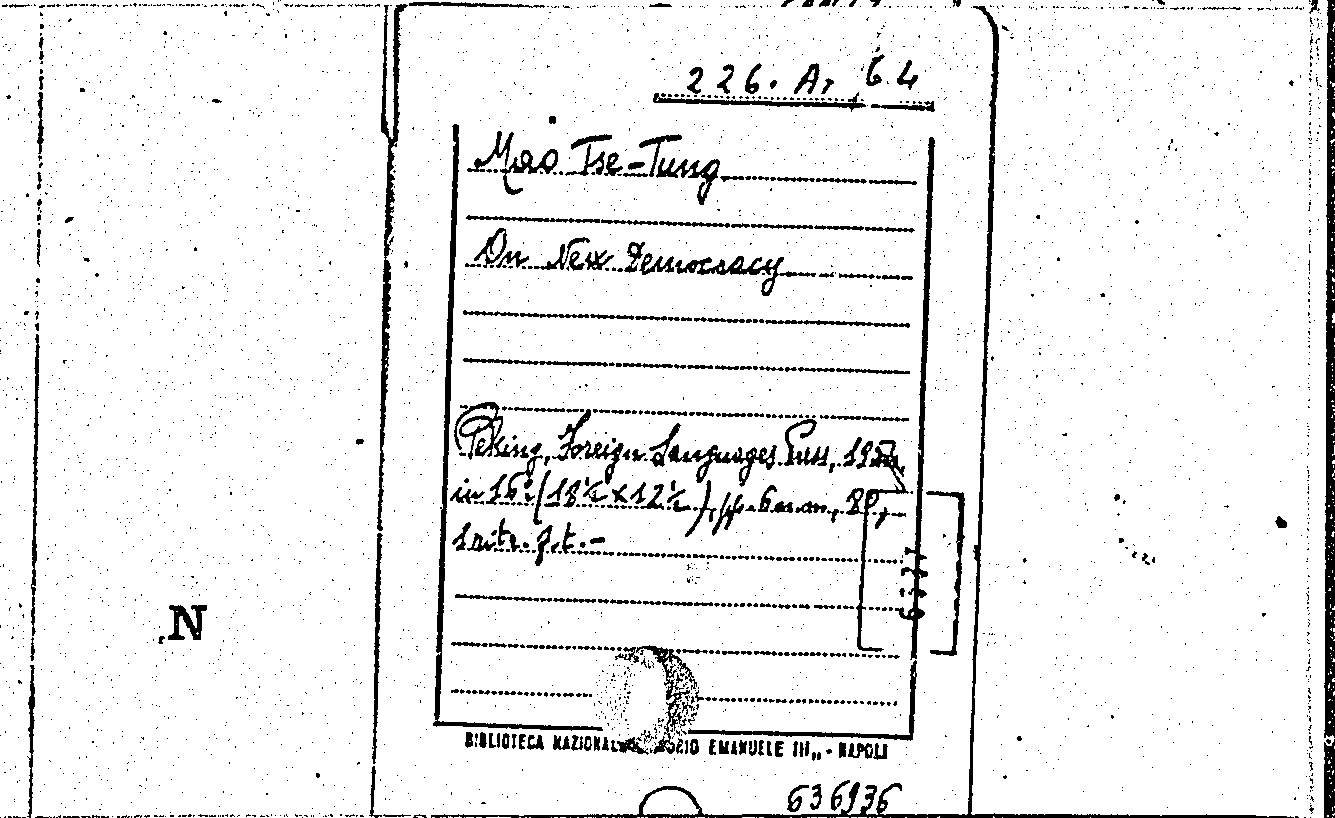 226. A, 64
Mao Tse-Tung
On New Democracy
Peking, Foreign Languages Press,
in 16° (18½ x 12½), pp. 6 n.n., 80,
1 ritr. f.t. -
N
BIBLIOTECA NAZIONALE EMANUELE III„ - NAPOLI
636936